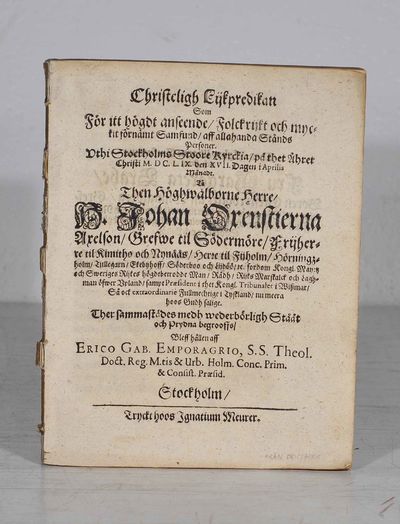 Christeligh Lijkpredikan
Som
För itt högdt anseende/ Folckrijkt och myc-
kit förnämt Samfund/ aff allahanda Stånds
Personer.
Uthi Stockholms Stoore Kyrckia/ på thet Åhret
Christi M. DC. LIX. den XVII. Dagen i Aprilis
Månadt.
Då
Then Höghwälborne Herre/
H. Johan Oxenstierna
Axelson/ Grefwe til Södermöre/ Frijher-
re til Kimitho och Nynääs/ Herre til Fijholm/ Hörningz-
holm/ Tullegarn/
och Sweriges Rijkes högbetrodde Man/ Rådh/ Rijks Marskalck och Lagh-
man öfwer Upland/ sampt Præsident i thet Kongl. Tribunalet i Wißmar/
Så ock extraordinarie Fullmechtige i Tyskland/ nu mera
hoos Gudh salige.
Ther sammastädes medh wederbörligh Stååt
och Prydna begrooffs/
Bleff hållen aff
ERICO GAB. EMPORAGRIO, S.S. Theol.
Doct. Reg. M.tis & Urb. Holm. Conc. Prim.
& Consist. Præsid.
Stockholm/
Tryckt hoos Ignatium Meurer.